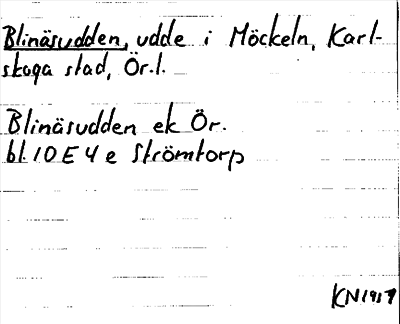 Blinäsudden, udde i Möckeln, Karl-
skoga stad, Ör.l.
Blinäsudden ek Ör.
bl.10E4e Strömtorp
KN1917